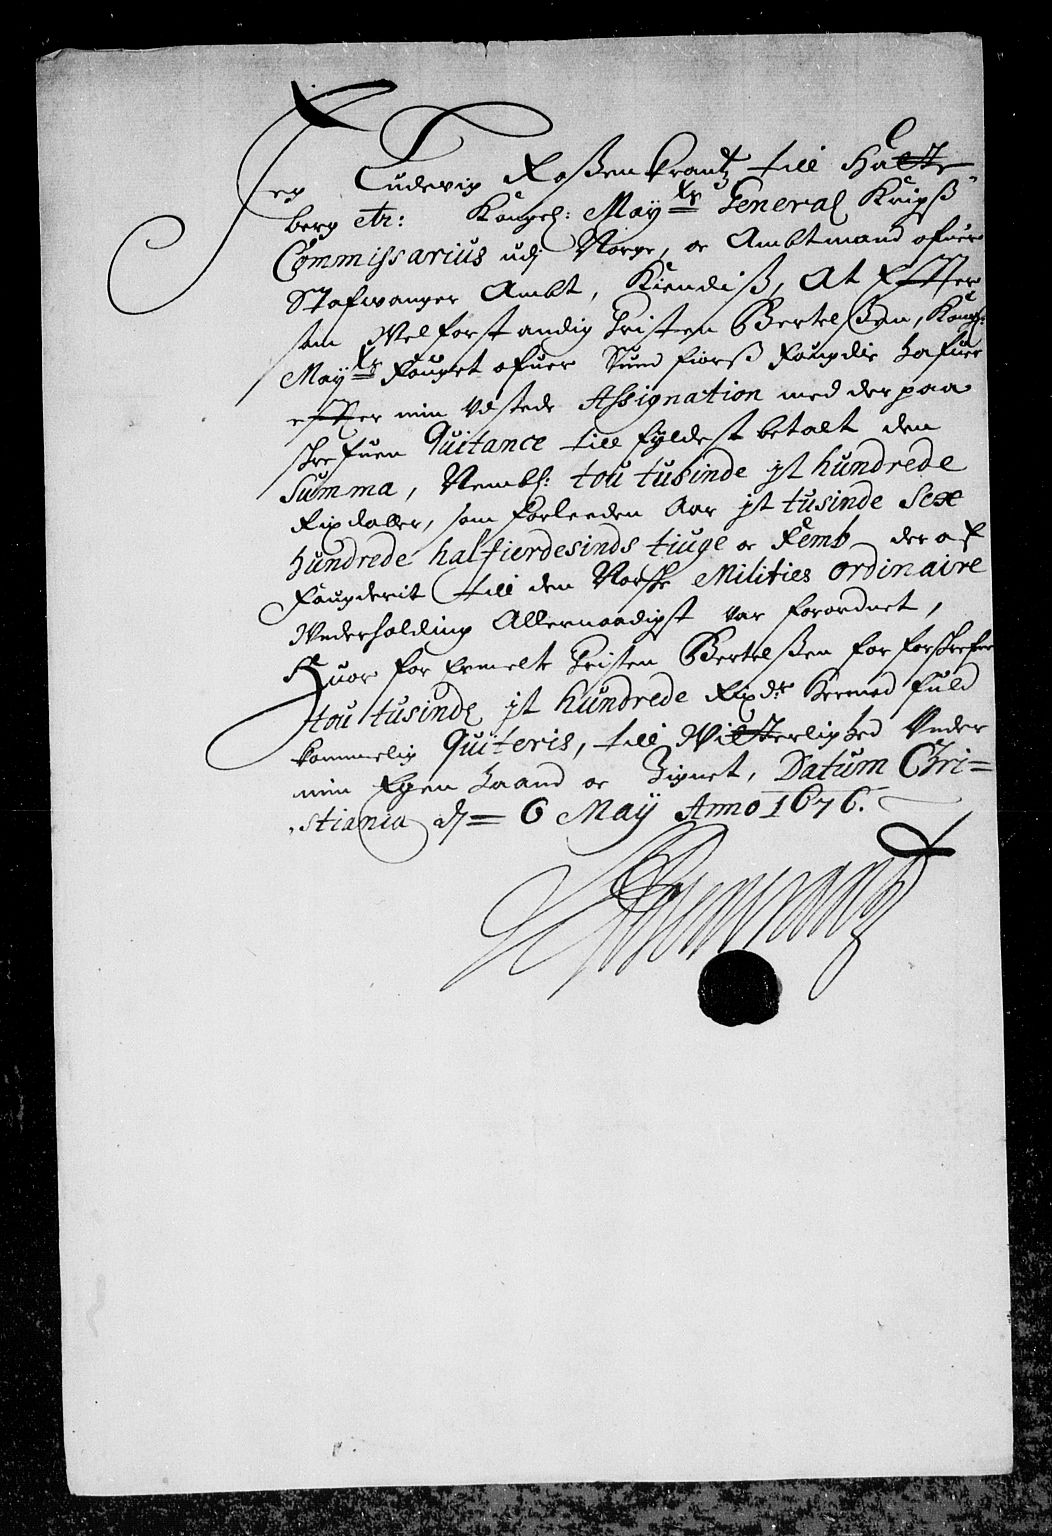 Jeg Ludevig Roßenkrantz till Hatte-
berg etc: Kongel: Mayts General Krigß
Commissarius udj Norge, oc Ambtmand ofuer
Stafwanger Ambt, Kiendiß, At Effter
som Welforstandig Tristen Bertelßen, Kongl:
Mayts Fouget ofuer Sundfiorß Fougdie hafuer
effter min Udstede Assignation med der paa
skrefuen Quitance till fyldest betalt den
Summa, Nembl: tou tusinde jt hundrede
Rixdaller, som forleeden Aar jt tusinde Sex
hundrede halfierdesinds tiuge oc Femb der af
Fougderit till den Norske Milities ordinaire
Underholding Allernaadigst var forordnet,
Huor for Ermelte Tristen Bertelßen for forskrefne
tou tusinde jt hundrede Rixdr hermed fuld
kommelig Quiteris, till Witterlighed Under
min Egen haand oc Zignet, Datum Chri=
stiania d= 6 Maÿ Anno 1676.
LRosenkrantz